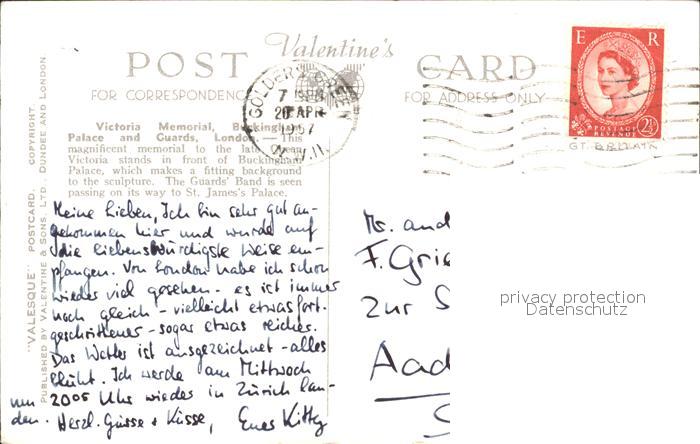 Valentine's
POST CARD
FOR CORRESPONDENCE
FOR ADDRESS ONLY
GOLDERS GREEN
7
20 APR
1957
N.W.11.
E R
POSTAGE
REVENUE
2½
GT. BRITAIN
Victoria Memorial, Buckingham
Palace and Guards, London.— This
magnificent memorial to the late Queen
Victoria stands in front of Buckingham
Palace, which makes a fitting background
to the sculpture. The Guards' Band is seen
passing on its way to St. James's Palace.
"VALESQUE" POSTCARD. COPYRIGHT.
PUBLISHED BY VALENTINE & SONS, LTD., DUNDEE AND LONDON.
Meine Lieben, Ich bin sehr gut an-
gekommen hier und wurde auf
die liebenswürdigste Weise em-
pfangen. Von London habe ich schon
wieder viel gesehen - es ist immer
noch gleich - vielleicht etwas fort-
geschrittener - sogar etwas reicher.
Das Wetter ist ausgezeichnet - alles
blüht. Ich werde am Mittwoch
um 2005 Uhr wieder in Zürich lan-
den. Herzl. Grüsse + Küsse, Eure Kitty
Mr. and
F. Grie
Zur S
Aad
privacy protection
Datenschutz